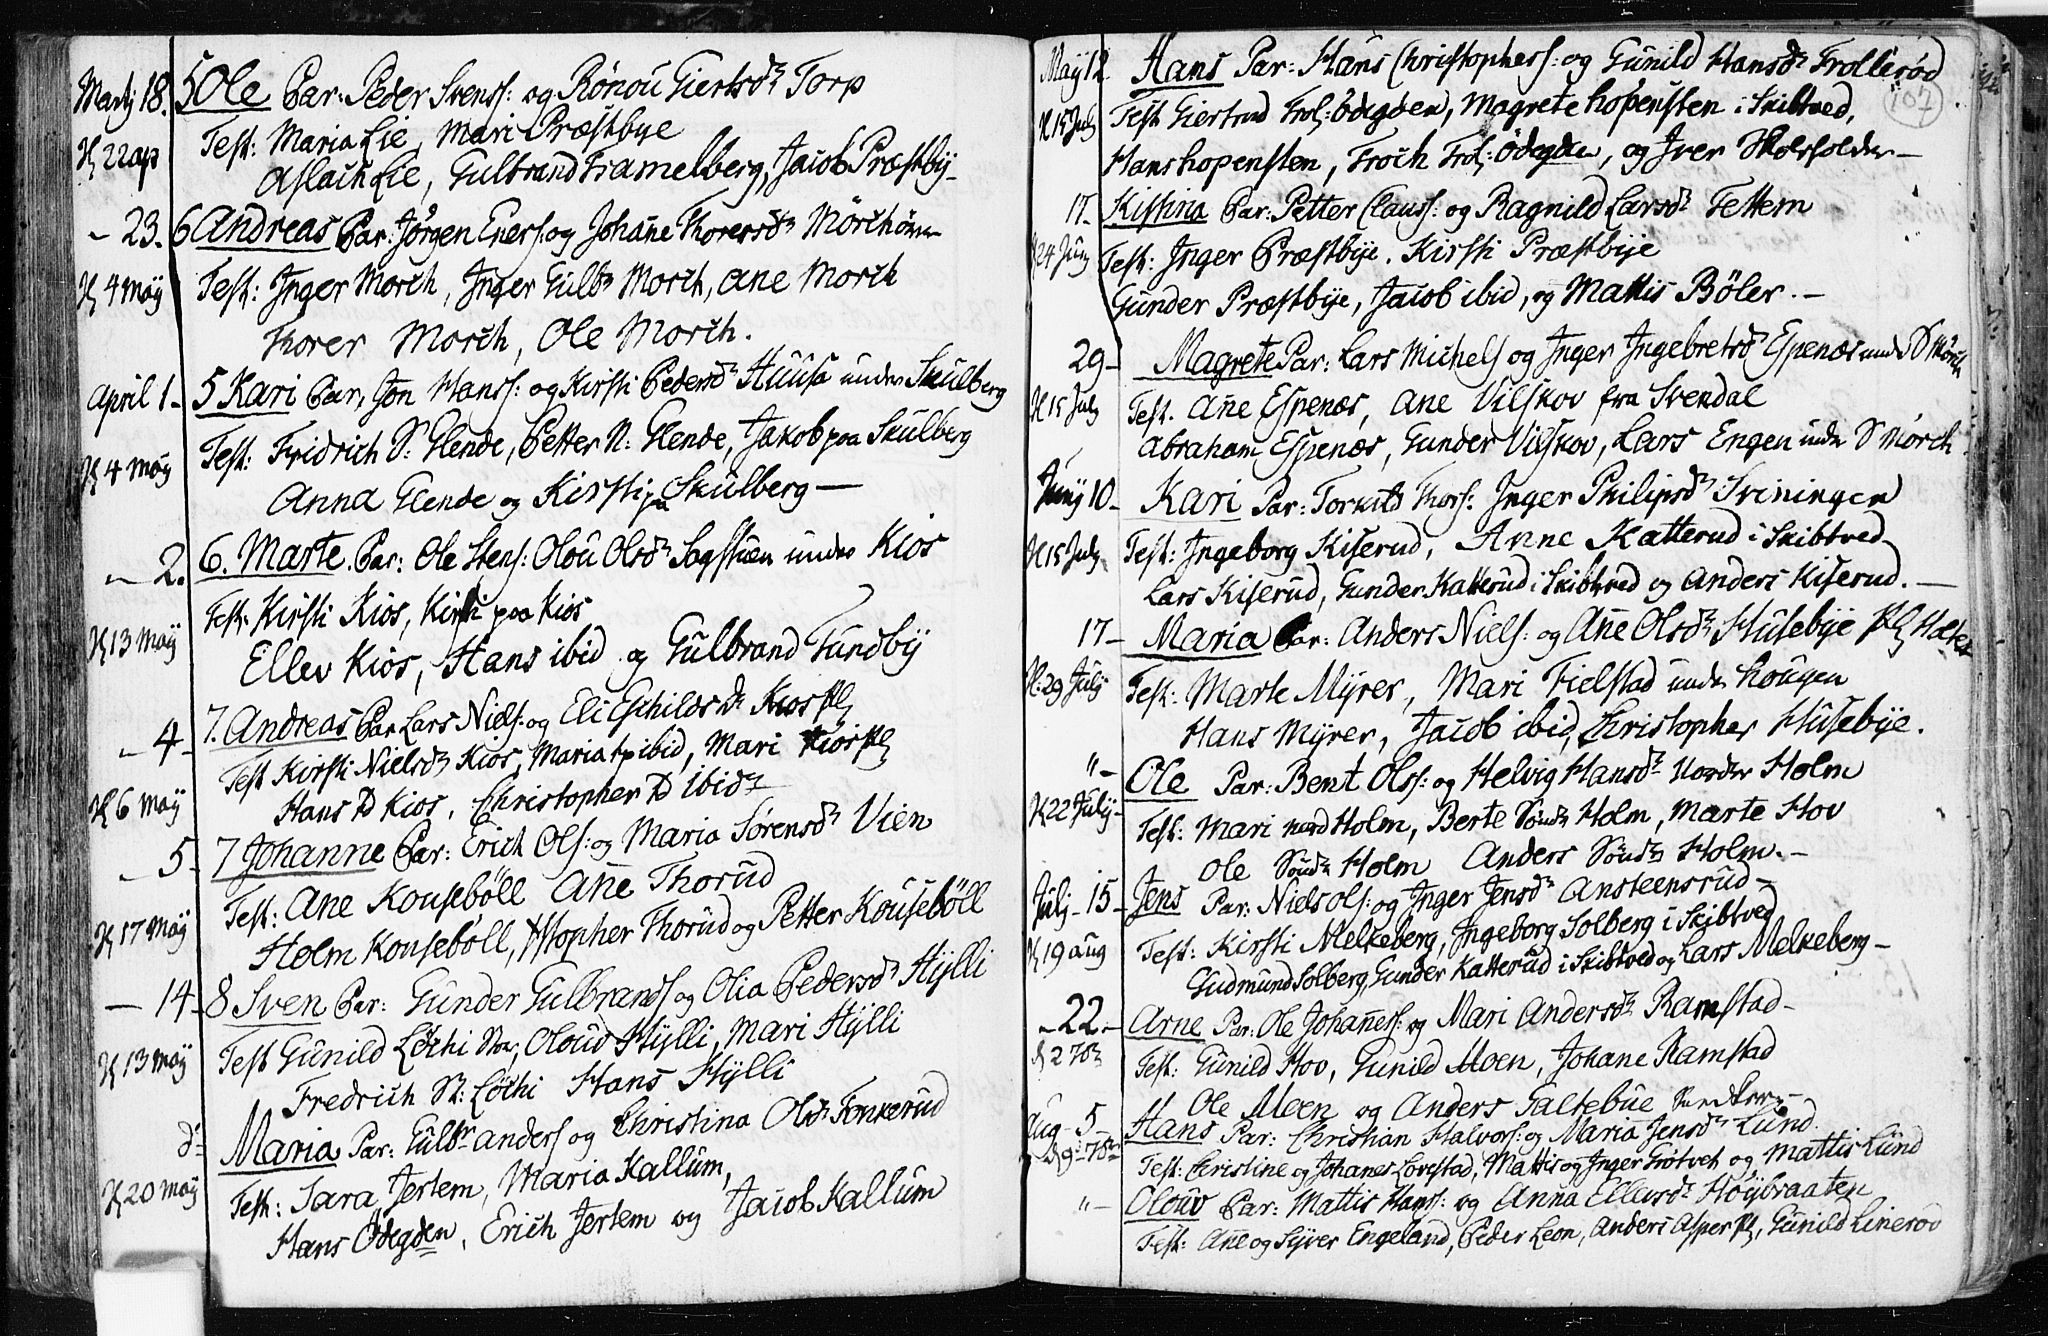 Martj 18. 5 Ole Par: Peder Svens: og Rönou Giertsdr Torp
Test: Maria Lie, Mari Præstbye
H 22 ap
Aslach Lie, Gulbrand Framelberg, Jacob Præstbÿ
- 23. 6 Andreas Par: Jörgen Eners: og Johane Thorersdr
H 4 Maÿ Test: Inger Morch, Inger Gulbr Morch, ane Morch
Thorer Morch, Ole Morch.
April 1 - 5 Kari Par, Jon Hanss: og Kirsti Pedersdr Huusa under Skulberg
Test: Fridrich S: Glende, Petter N: Glende, Jakob paa Skulberg
H 4 Maÿ
Anna Glende og Kirsti pa Skulberg —
- 2. 6. Marte. Par: Ole Stens: Olou Olsdr Sagstuen under Kios
Test: Kirsti Kios, Kirsti paa Kios
H 13 Maÿ
Ellev Kios, Hans ibid og Gulbrand Tundbÿ
- 4 - 7. Andreas Par Lars Niels: og Eli Eschildsdr Kios Pl
Test Kirsti Nielsdr Kios, Maria ibid, Mari Kios Pl
H 6 Maÿ
Hans Kios, Christopher ibid
- 5 - 7 Johanne Par: Erich Ols: og Maria Sørensdr Vien
Test: Ane Kousebøll Ane Thorud
H 17 Maÿ
Holm Kousebøll, Xstopher Thorud og Petter Kousebøll
— 14 - 8 Sven Par: Gunder Gulbrands og Olia Pedersdr Hÿlli
Test Gunild Löchi, Olouv Hÿlli, Mari Hÿlli
H 13 Maÿ
Fredrich Löchi Hans Hÿlli
do Maria Par: Gulbr anders og Christina Olsdr Fonkerud
H 20 Maÿ Test: Sara Jertem, Maria Kallum,
Hans Ödegden, Erich Jertem og Jacob Kallum
107
Maÿ 12 Hans Par: Hans Christophers: og Gunild Hansdr Trollerød
H 15 Julÿ Test Giertrud Trol: Ödegden, Magrete hopensten i Skibtved,
Hans hopensten, Troch Trol: Ödegden, og Iver
17 - Kistina Par: Petter Claus: og Ragnild Larsdr Tettem
H 24 Junÿ Test: Inger Præstbÿe. Kirsti Præstbÿe
Gunder Præstbÿe, Jacob ibid, og Mattis Böler. —
29 - Magrete Par: Lars Michels og Inger Ingebretsdr Espenæs under S Mörch
H 15 Julÿ Test. Ane Espenæs, Ane Vilskov fra Svendal
Abraham Espenæs, Gunder Vilskov, Lars Engen under S Morch
Junÿ 10 - Kari Par: Torkild Thors: Inger Philipsdr Sveningen
H 15 Julÿ Test: Ingeborg Kiserud, Anne Katterud i Skibtved
Lars Kiserud, Gunder Katterud i Skibtved og Anders Kiserud. —
17 - Maria Par: Anders Niels: og Ane Olsdr Husebÿe Pl
H: 29 Julÿ Test: Marte Mÿrer, Mari Fielstad under hougen
Hans Mÿrer, Jacob ibid, Christopher Husebÿe.
" - Ole Par: Bent Olss: og Helvig Hansdr Norder Holm
H 22 Julÿ - Test: Mari nord Holm, Berte Sönd: Holm, Marte Hov
Ole Sönd: Holm Anders Sönd: Holm. —
Julÿ - 15 - Jens Par: Niels Ols: og Inger Jensdr Ansteensrud -
H 19 aug Test: Kirsti Melkeberg, Ingeborg Solberg i Skibtved
Gudmund Solberg, Gunder Katterud i Skibtved og Lars Melkeberg —
- 22. - Arne Par: Ole Johanes: og Mari Andersdr Ramstad -
d 2 7br Test: Gunild Hov, Gunild Moen, Johane Ramstad
Ole Moen og Anders Taltebüe
Aug - 5 - Hans Par: Christian Halvors: og Maria Jensdr Lund.
d 9 7br Test: Christine og Johanes Lovestad, Mattis og Inger Trötvet og Mattis Lund
" - Olouv Par: Mattis Hans: og Anna Ellevsdr Höÿbraaten
Test: Ane og Sÿver Engeland, Peder Leon, Anders Asper Pl, Gunild Linerøv